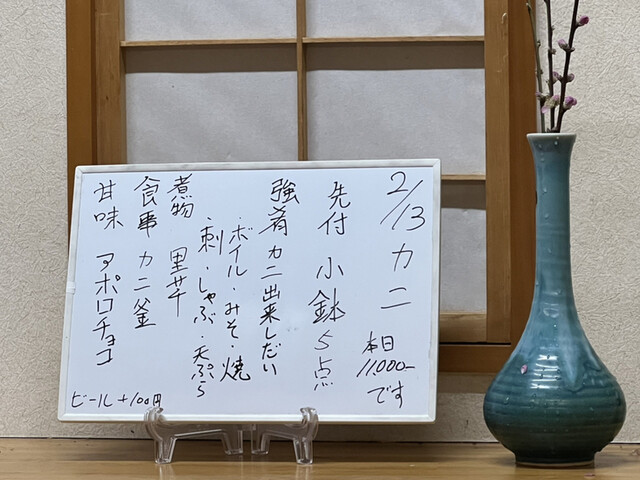 2/13 カニ
本日
11,000-
です
先付 小鉢5点
強肴 カニ出来しだい
・ボイル・みそ・焼
・刺・しゃぶ・天ぷら
煮物 里芋
食事 カニ釜
甘味 アポロチョコ
ビール+100円